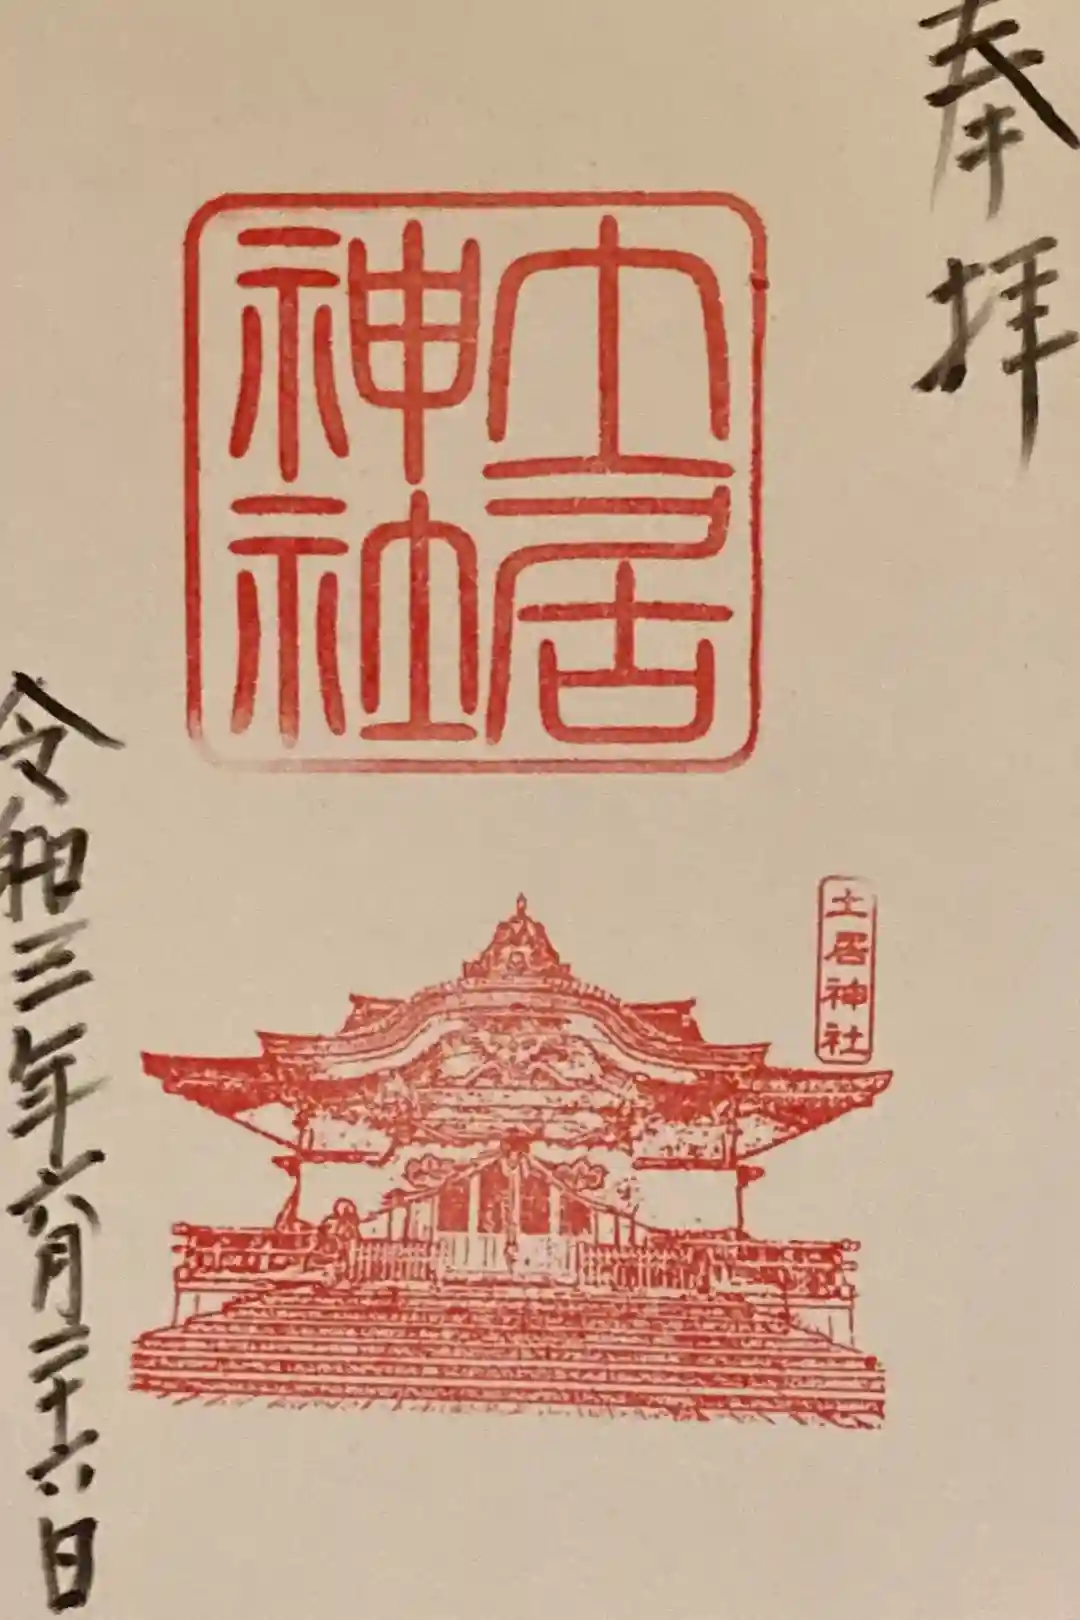 奉拝
土居
神社
土居神社
令和三年六月二十六日